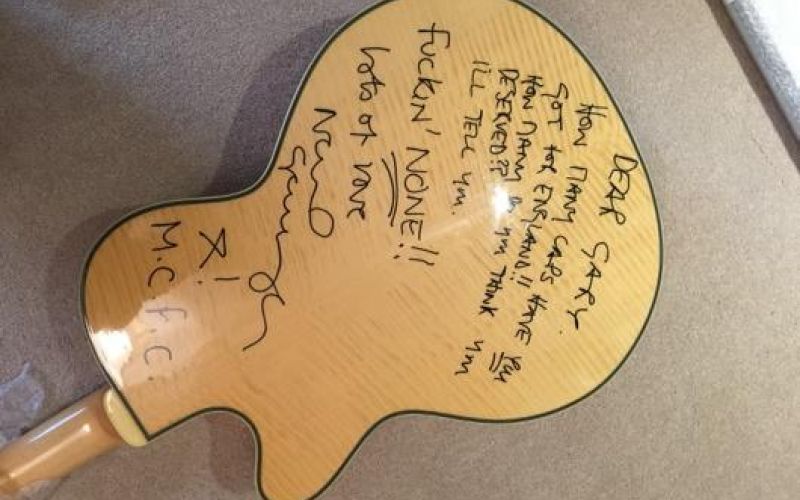 DEAR GARY.
HOW MANY CAPS HAVE YOU
GOT FOR ENGLAND!!
HOW MANY DO YOU THINK YOU
DESERVED??
I'LL TELL YOU.
FUCKIN' NONE!!
Lots of love
X!
M.C.F.C.